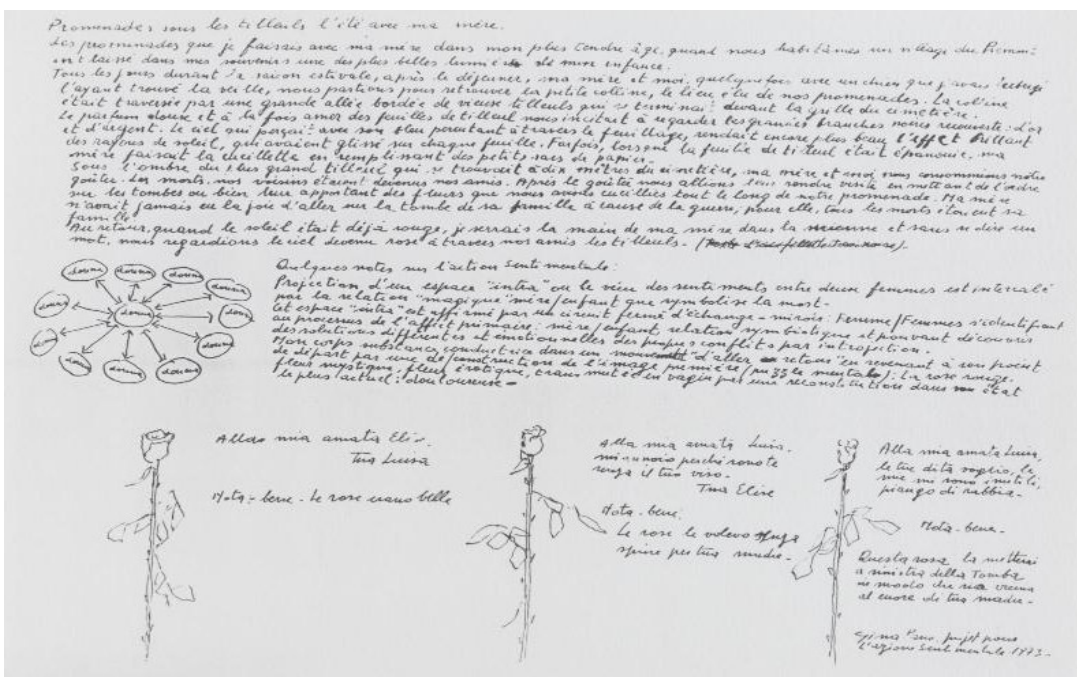 Promenades sous les tilleuls l'été avec ma mère.
Les promenades que je faisais avec ma mère dans mon plus tendre âge, quand nous habitâmes un village du Piémont
ont laissé dans mes souvenirs une des plus belles lumières de mon enfance.
Tous les jours durant la saison estivale, après le déjeuner, ma mère et moi, quelquefois avec un chien que j'avais
l'ayant trouvé la veille, nous partions pour retrouver la petite colline, le lieu élu de nos promenades. La colline
était traversée par une grande allée bordée de vieux tilleuls qui se terminait devant la grille du cimetière.
Le parfum doux et à la fois amer des feuilles de tilleul nous incitait à regarder les grandes branches recouvertes d'or
et d'argent. Le ciel qui perçait avec son bleu à travers le feuillage, rendait encore plus beau l'effet brillant
des rayons de soleil, qui avaient glissé sur chaque feuille. Parfois, lorsque la feuille de tilleul était épanouie, ma
mère faisait la cueillette en remplissant des petits sacs de papier.
Sous l'ombre du plus grand tilleul qui se trouvait à dix mètres du cimetière, ma mère et moi nous consommions notre
goûter. Les morts, nos voisins étaient devenus nos amis. Après le goûter nous allions leur rendre visite en mettant de l'ordre
sur les tombes ou bien leur apportant des fleurs que nous avions cueillies tout le long de notre promenade. Ma mère
n'avait jamais eu la joie d'aller sur la tombe de sa famille à cause de la guerre, pour elle, tous les morts étaient sa
famille.
Au retour, quand le soleil était déjà rouge, je serrais la main de ma mère dans la mienne et sans se dire un
mot, nous regardions le ciel devenu rose à travers nos amis les tilleuls.
Quelques notes sur l'action sentimentale:
Projection d'un espace "intra" où le vécu des sentiments entre deux femmes est intercalé
par la relation "magique" mère/enfant que symbolise la mort.
Cet espace "intra" est affirmé par un circuit fermé d'échange-miroir: Femme/Femmes s'identifiant
au processus de l'affect primaire: mère/enfant, relation symbiotique et pouvant découvrir
des solutions différentes et émotionnelles des propres conflits par introjection.
Mon corps substance conductrice dans un mouvement "d'aller retour" en revenant à son point
de départ par une dé/construction de l'image première (puzzle mentale): la rose rouge,
fleur mystique, fleur érotique, transmutée en vagin par une reconstitution dans son état
le plus actuel: douloureux -
donna donna donna donna
donna donna donna
donna donna donna donna
Alla mia amata Elise.
Tua Luisa
Nota-bene - Le rose erano belle
Alla mia amata Luisa.
mi annoio perché sono te
senza il tuo viso -
Tua Elise
Nota-bene:
Le rose le volevo senza
spine per tua madre -
Alla mia amata Luisa,
le tue dita voglio, le
mie mi sono inutili,
piango di rabbia -
Nota-bene -
Questa rosa la metterai
a sinistra della Tomba
in modo che sia vicina
al cuore di tua madre -
Gina Pane, projet pour
l'azione sentimentale 1973 -